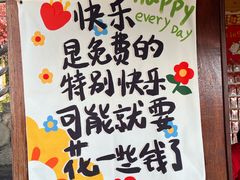 HAPPY
every day
快乐
是免费的
特别快乐
可能就要
花一些钱了